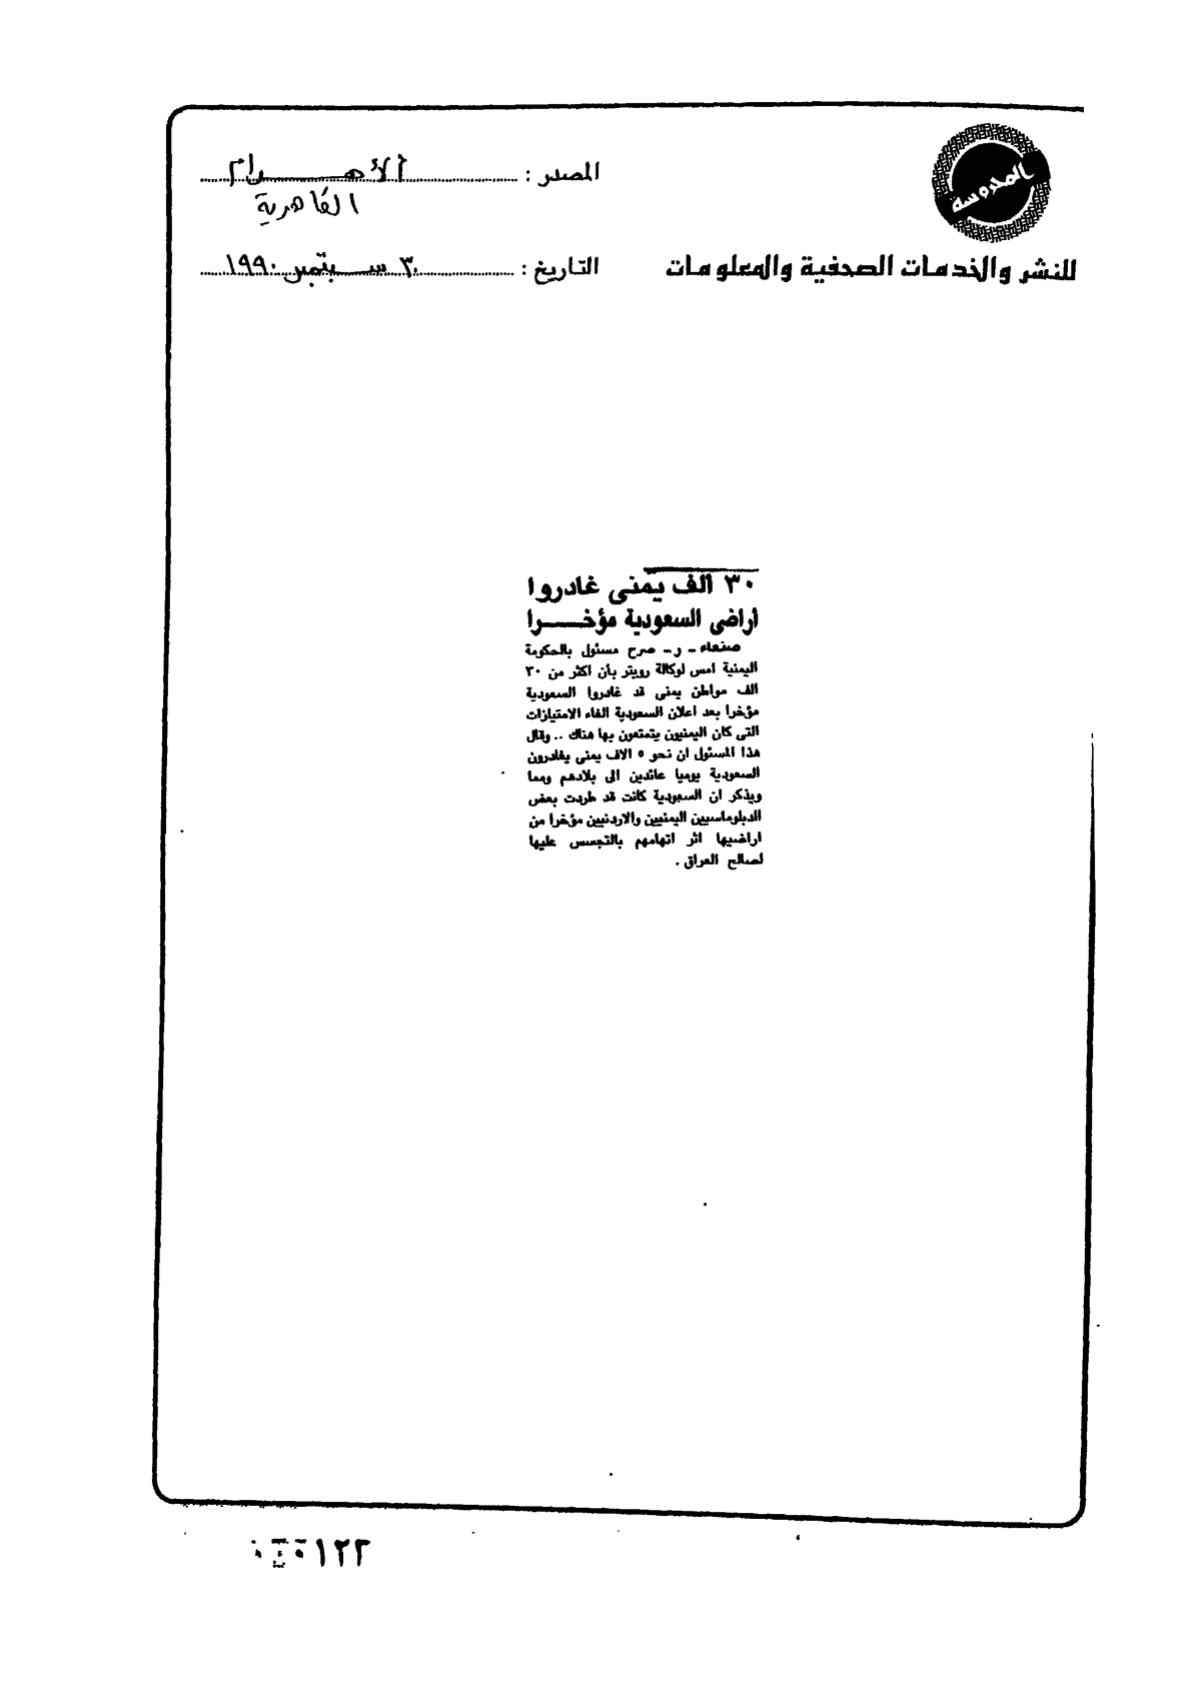 المحروسة
للنشر والخدمات الصحفية والمعلومات
المصدر : الأهـــرام
القاهرية
التاريخ : ٣٠ سبتمبر ١٩٩٠
٣٠ ألف يمنى غادروا
أراضى السعودية مؤخـــرا
صنعاء - ر - صرح مسئول بالحكومة
اليمنية امس لوكالة رويتر بأن اكثر من ٣٠
الف مواطن يمنى قد غادروا السعودية
مؤخرا بعد اعلان السعودية الغاء الامتيازات
التى كان اليمنيون يتمتعون بها هناك .. وقال
هذا المسئول ان نحو ٥ الاف يمنى يغادرون
السعودية يوميا عائدين الى بلادهم ومما
ويذكر ان السعودية كانت قد طردت بعض
الدبلوماسيين اليمنيين والاردنيين مؤخرا من
اراضيها اثر اتهامهم بالتجسس عليها
لصالح العراق .